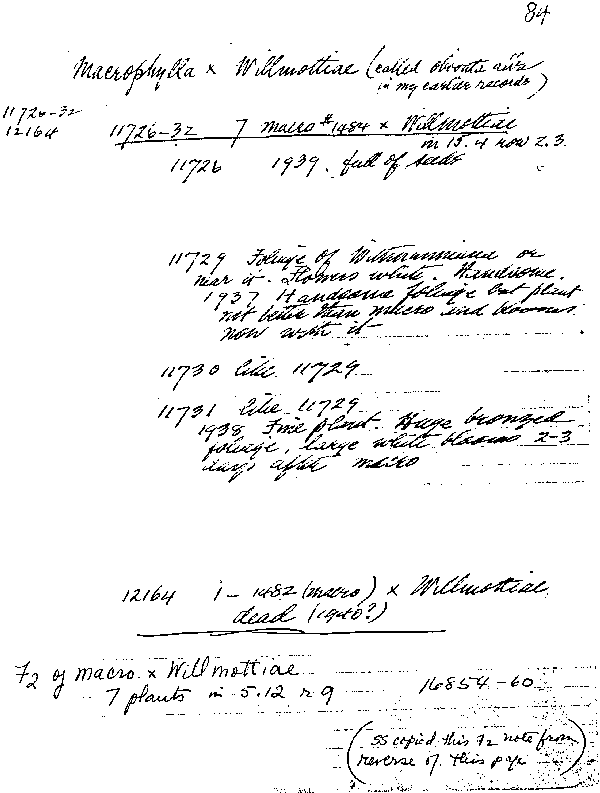 84
Macrophylla x Willmottiae (called obovata alba
in my earlier records)
11726-32
12164
11726-32 7 macro #1484 x Willmottiae
in 15.4 row 2.3.
11726 1939. full of seeds
11729 Foliage of or
near it. Flowers white. Handsome.
1937 Handsome foliage but plant
not better than macro and blooms
now with it
11730 like 11729
11731 like 11729
1938 Fine plant. Huge bronzed
foliage, large white blooms 2-3
days after macro
12164 1 - 1482 (macro) x Willmottiae
dead (1940?)
F2 of macro x Willmottiae
7 plants in 5.12 r 9 16854-60
(SS copied this F2 note from
reverse of this page)